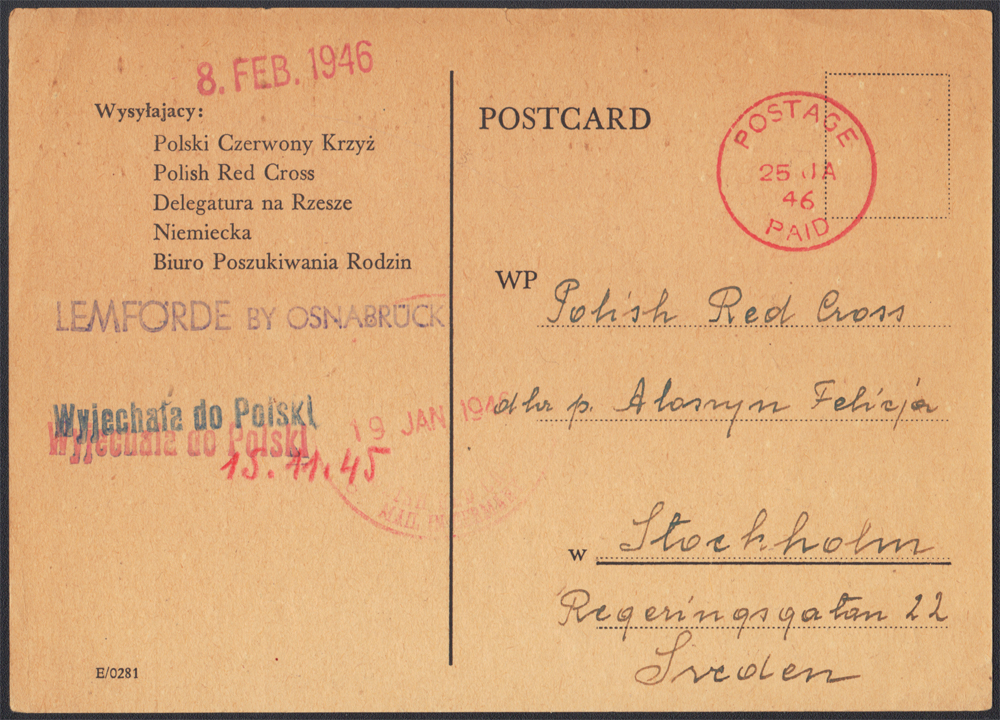 8. FEB. 1946
Wysyłajacy:
Polski Czerwony Krzyż
Polish Red Cross
Delegatura na Rzesze
Niemiecka
Biuro Poszukiwania Rodzin
LEMFÖRDE BY OSNABRÜCK
Wyjechała do Polski
Wyjechała do Polski
15.11.45
19 JAN 1946
E/0281
POSTCARD
POSTAGE
25 JA
46
PAID
WP
Polish Red Cross
dla p. Felicja
w Stockholm
Regeringsgatan 22
Sveden